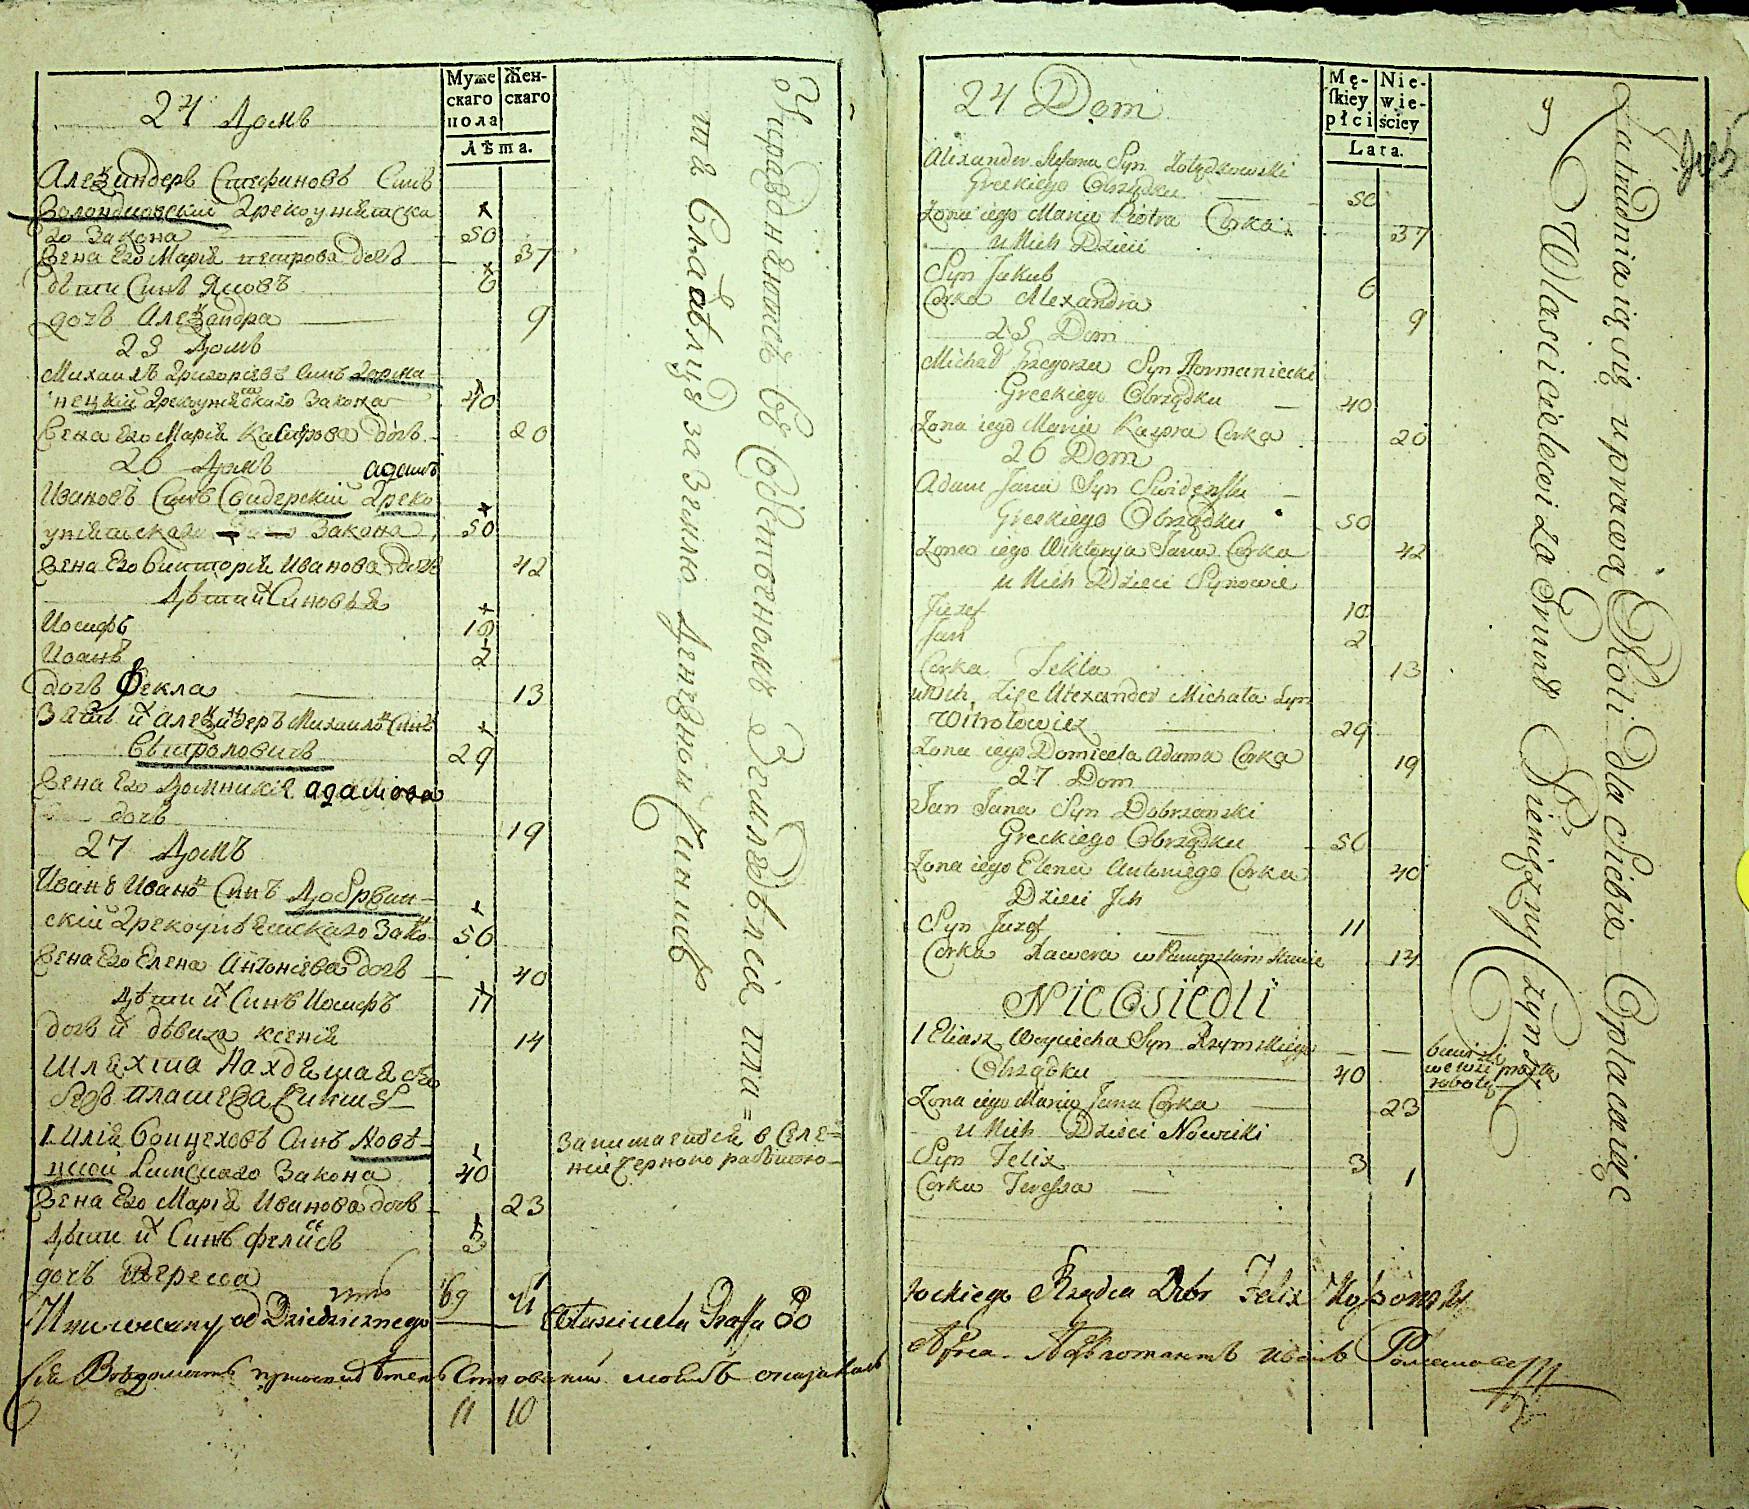 Муже
скаго
пола
Жен-
скаго
Лѣта.
24 Домъ
Алеѯандеръ Стефановъ Синъ
Золондковскій Грекоунѣтска
го Закона 50
Жена Его Марія петрова дочъ 37
дѣти Синъ Яковъ 6
дочъ Алеѯандра 9
25 Домъ
Михаилъ Григоріевъ Синъ Горма
нецкій Грекоунѣтскаго Закона 40
Жена Его Марія Касперова дочъ 20
26 Домъ адамъ
Ивановъ Синъ Свидерскій Греко
унѣтскаго Закона 50
Жена Его Викторія Иванова дочъ 42
Дѣти их Синовья
Иосифъ 10
Иоанъ 2
дочъ Фекла 13
Зять их Алеѯандеръ Михайловъ Синъ
Витроловичъ 29
Жена Его Домникія адамова
дочъ 19
27 Домъ
Иванъ Иванов Синъ Добржан-
скій Грекоунѣтскаго Зако 56
Жена Его Елена Антоніева дочъ 40
Дѣти их Синъ Иосифъ 11
дочъ их дѣвица Ксенія 14
Шляхта Находящая
безъ платежа Чиншу
1 Илія Войцеховъ Синъ Новѣ-
цкій Римскаго Закона 40
Жена Его Марія Иванова дочъ 23
Дѣти их Синъ Феликсъ 3
дочъ Тереса 1
69 71
11 10
Упражняются въ Собственномъ Земледѣліи пла=
тя Владѣлцу за Землю Денежный Чиншъ
Занимается в Селе=
ніи Черною работою
24 Dom
Mę-
skiey
płci
Nie-
wie-
ściey
Lata.
Alexander Stefana Syn Zołądkowski
Greckiego Obrządku 50
Zona iego Maria Piotra Corka 37
u Nich Dzieci
Syn Jakub 6
Corka Alexandra 9
25 Dom
Michał Grzegorza Syn Hormaniecki
Greckiego Obrządku 40
Zona iego Maria Kaspra Corka 20
26 Dom
Adam Jana Syn Swiderski
Greckiego Obrządku 50
Zona iego Wiktorya Jana Corka 42
u Nich Dzieci Synowie
Jozef 10
Jan 2
Corka Tekla 13
u Nich Zięc Alexander Michała Syn
Witrołowicz 29
Zona iego Domicela Adama Corka 19
27 Dom
Jan Jana Syn Dobrzanski
Greckiego Obrządku 56
Zona iego Elena Antoniego Corka 40
Dzieci Ich
Syn Juzef 11
Corka Xawera w Panienskim stanie 14
Nie Osiedli
1 Eliasz Woyciecha Syn Rzymskiego
Obrządku 40
Zona iego Maria Jana Corka 23
u Nich Dzieci Nowicki
Syn Felix 3
Corka Teressa 1
Zatrudniaią się uprawą Roli dla Siebie Opłacaiąc
Właścicielowi za Grunt Pieniężny Czynsz
bawi się
we wsi prostą
robotą
tockiego Rządca Dobr Felix